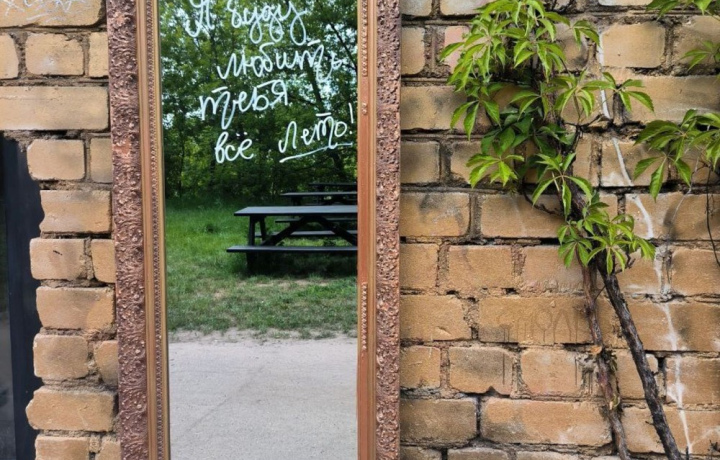 Я буду
любить
тебя
всё лето!